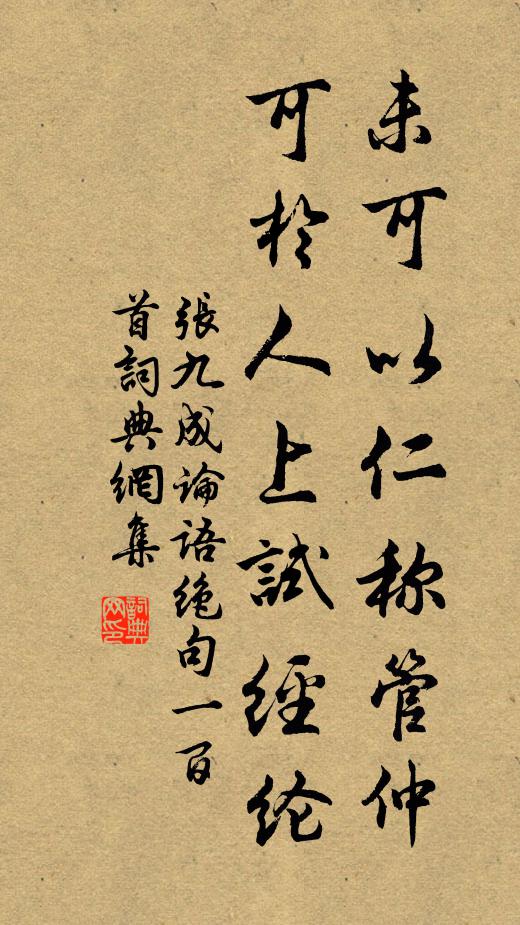 未可以仁称管仲
可於人上試經纶
張九成論语绝句一百
首詞典網集
詞典
网印